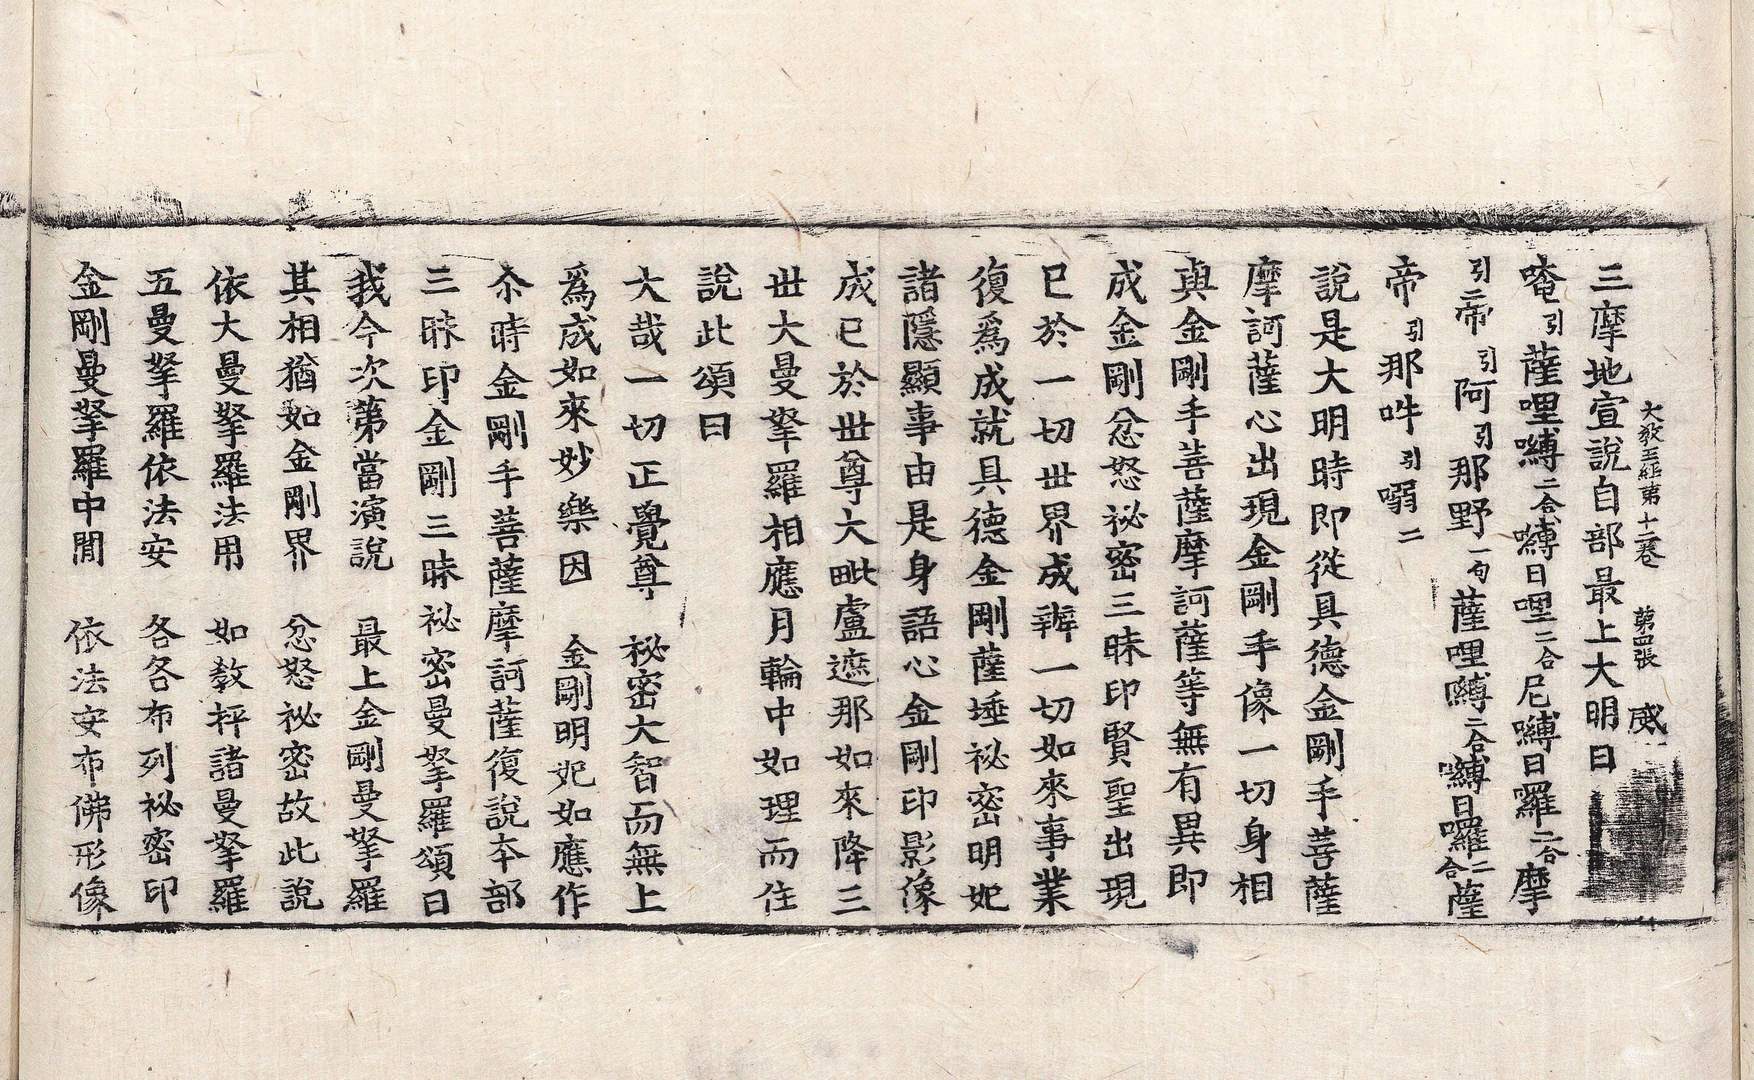 大教王經第十二卷　第四張　威
三摩地宣說自部最上大明曰
唵引薩哩嚩二合嚩日哩二合尼嚩日羅二合摩
引二帝引阿引那野一句薩哩嚩二合嚩日囉二合薩
帝引那吽引嚩二
說是大明時即從具德金剛手菩薩
摩訶薩心出現金剛手像一切身相
與金剛手菩薩摩訶薩等無有異即
成金剛忿怒祕密三昧印賢聖出現
已於一切世界成辦一切如來事業
復爲成就具德金剛薩埵祕密明妃
諸隱顯事由是身語心金剛印影像
成已於世尊大毗盧遮那如來降三
世大曼拏羅相應月輪中如理而住
說此頌曰
大哉一切正覺尊　祕密大智而無上
爲成如來妙樂因　金剛明妃如應作
尒時金剛手菩薩摩訶薩復說本部
三昧印金剛三昧祕密曼拏羅頌曰
我今次第當演說　最上金剛曼拏羅
其相猶如金剛界　忿怒祕密故此說
依大曼拏羅法用　如教抨諸曼拏羅
五曼拏羅依法安　各各布列祕密印
金剛曼拏羅中間　依法安布佛形像